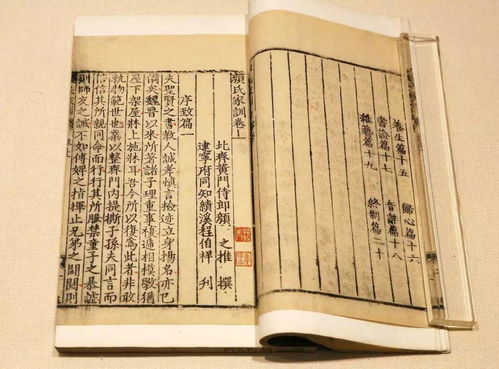 養生篇十五　歸心篇十六
書證篇十七　音辭篇十八
雜藝篇十九　終制篇二十
顏氏家訓卷上
北齊黃門侍郎顏　之推　撰
建寧府同知績溪程伯祥　刊
序致篇一
夫聖賢之書教人誠孝慎言檢迹立身揚名亦已
備矣魏晉以來所著諸子理重事複遞相模斆猶
屋下架屋牀上施牀耳吾今所以復為此者非敢
軌物範世也業以整齊門內提撕子孫夫同言而
信信其所親同命而行行其所服禁童子之暴謔
則師友之誡不如傅婢之指揮止兄弟之鬪鬩則